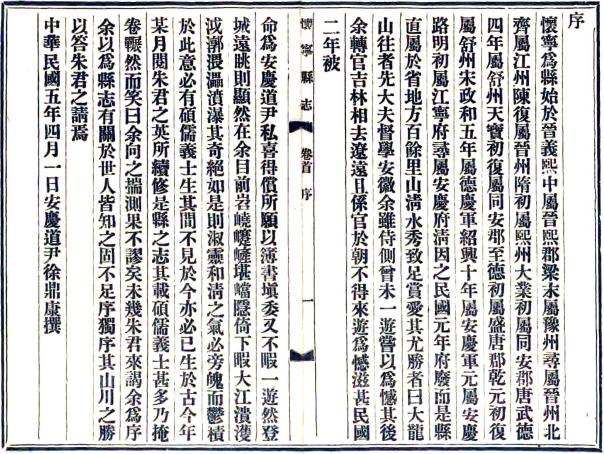 序
懷寧爲縣始於晉義熙中屬晉熙郡梁末屬豫州尋屬晉州北
齊屬江州陳復屬晉州隋初屬熙州大業初屬同安郡唐武德
四年屬舒州天寶初復屬同安郡至德初屬盛唐郡乾元初復
屬舒州宋政和五年屬德慶軍紹興十年屬安慶軍元屬安慶
路明初屬江寧府尋屬安慶府清因之民國元年府廢而是縣
直屬於省地方百餘里山清水秀致足賞愛其尤勝者曰大龍
山往者先大夫督學安徽余雖侍側曾未一遊嘗以爲憾其後
余轉官吉林相去遼遠且係官於朝不得來遊爲憾滋甚民國
二年被
懷寧縣志
卷首
序
一
命爲安慶道尹私喜得償所願以簿書塡委又不暇一遊然登
城遠眺則顯然在余目前岩嶢嶻嵯堪嶂隱倚下瞰大江潰濩
淢漷渨㵽濆瀑其奇絕如是則淑靈和清之氣必旁魄而鬱積
於此意必有碩儒義士生其間不見於今亦必已生於古今年
某月閱朱君之英所續修是縣之志其載碩儒義士甚多乃掩
卷冁然而笑曰余向之揣測果不謬矣未幾朱君來謁余爲序
余以爲縣志有關於世人皆知之固不足序獨序其山川之勝
以答朱君之請焉
中華民國五年四月一日安慶道尹徐鼎康撰